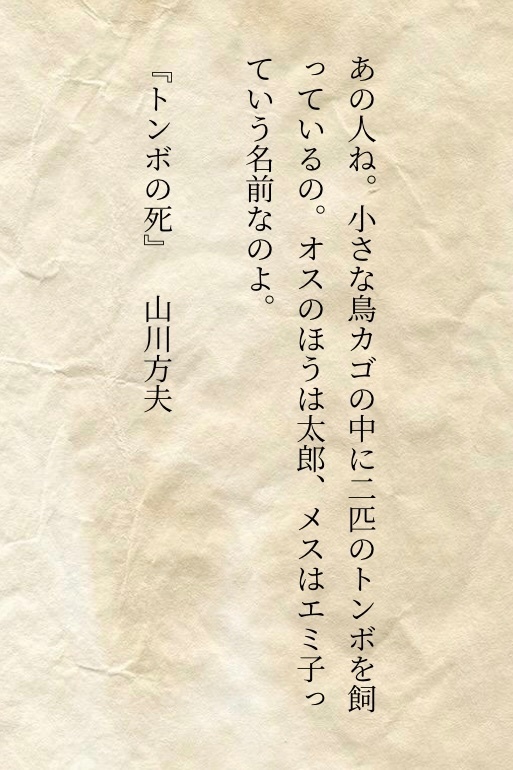 あの人ね。小さな鳥カゴの中に二匹のトンボを飼
っているの。オスのほうは太郎、メスはエミ子っ
ていう名前なのよ。
『トンボの死』　山川方夫